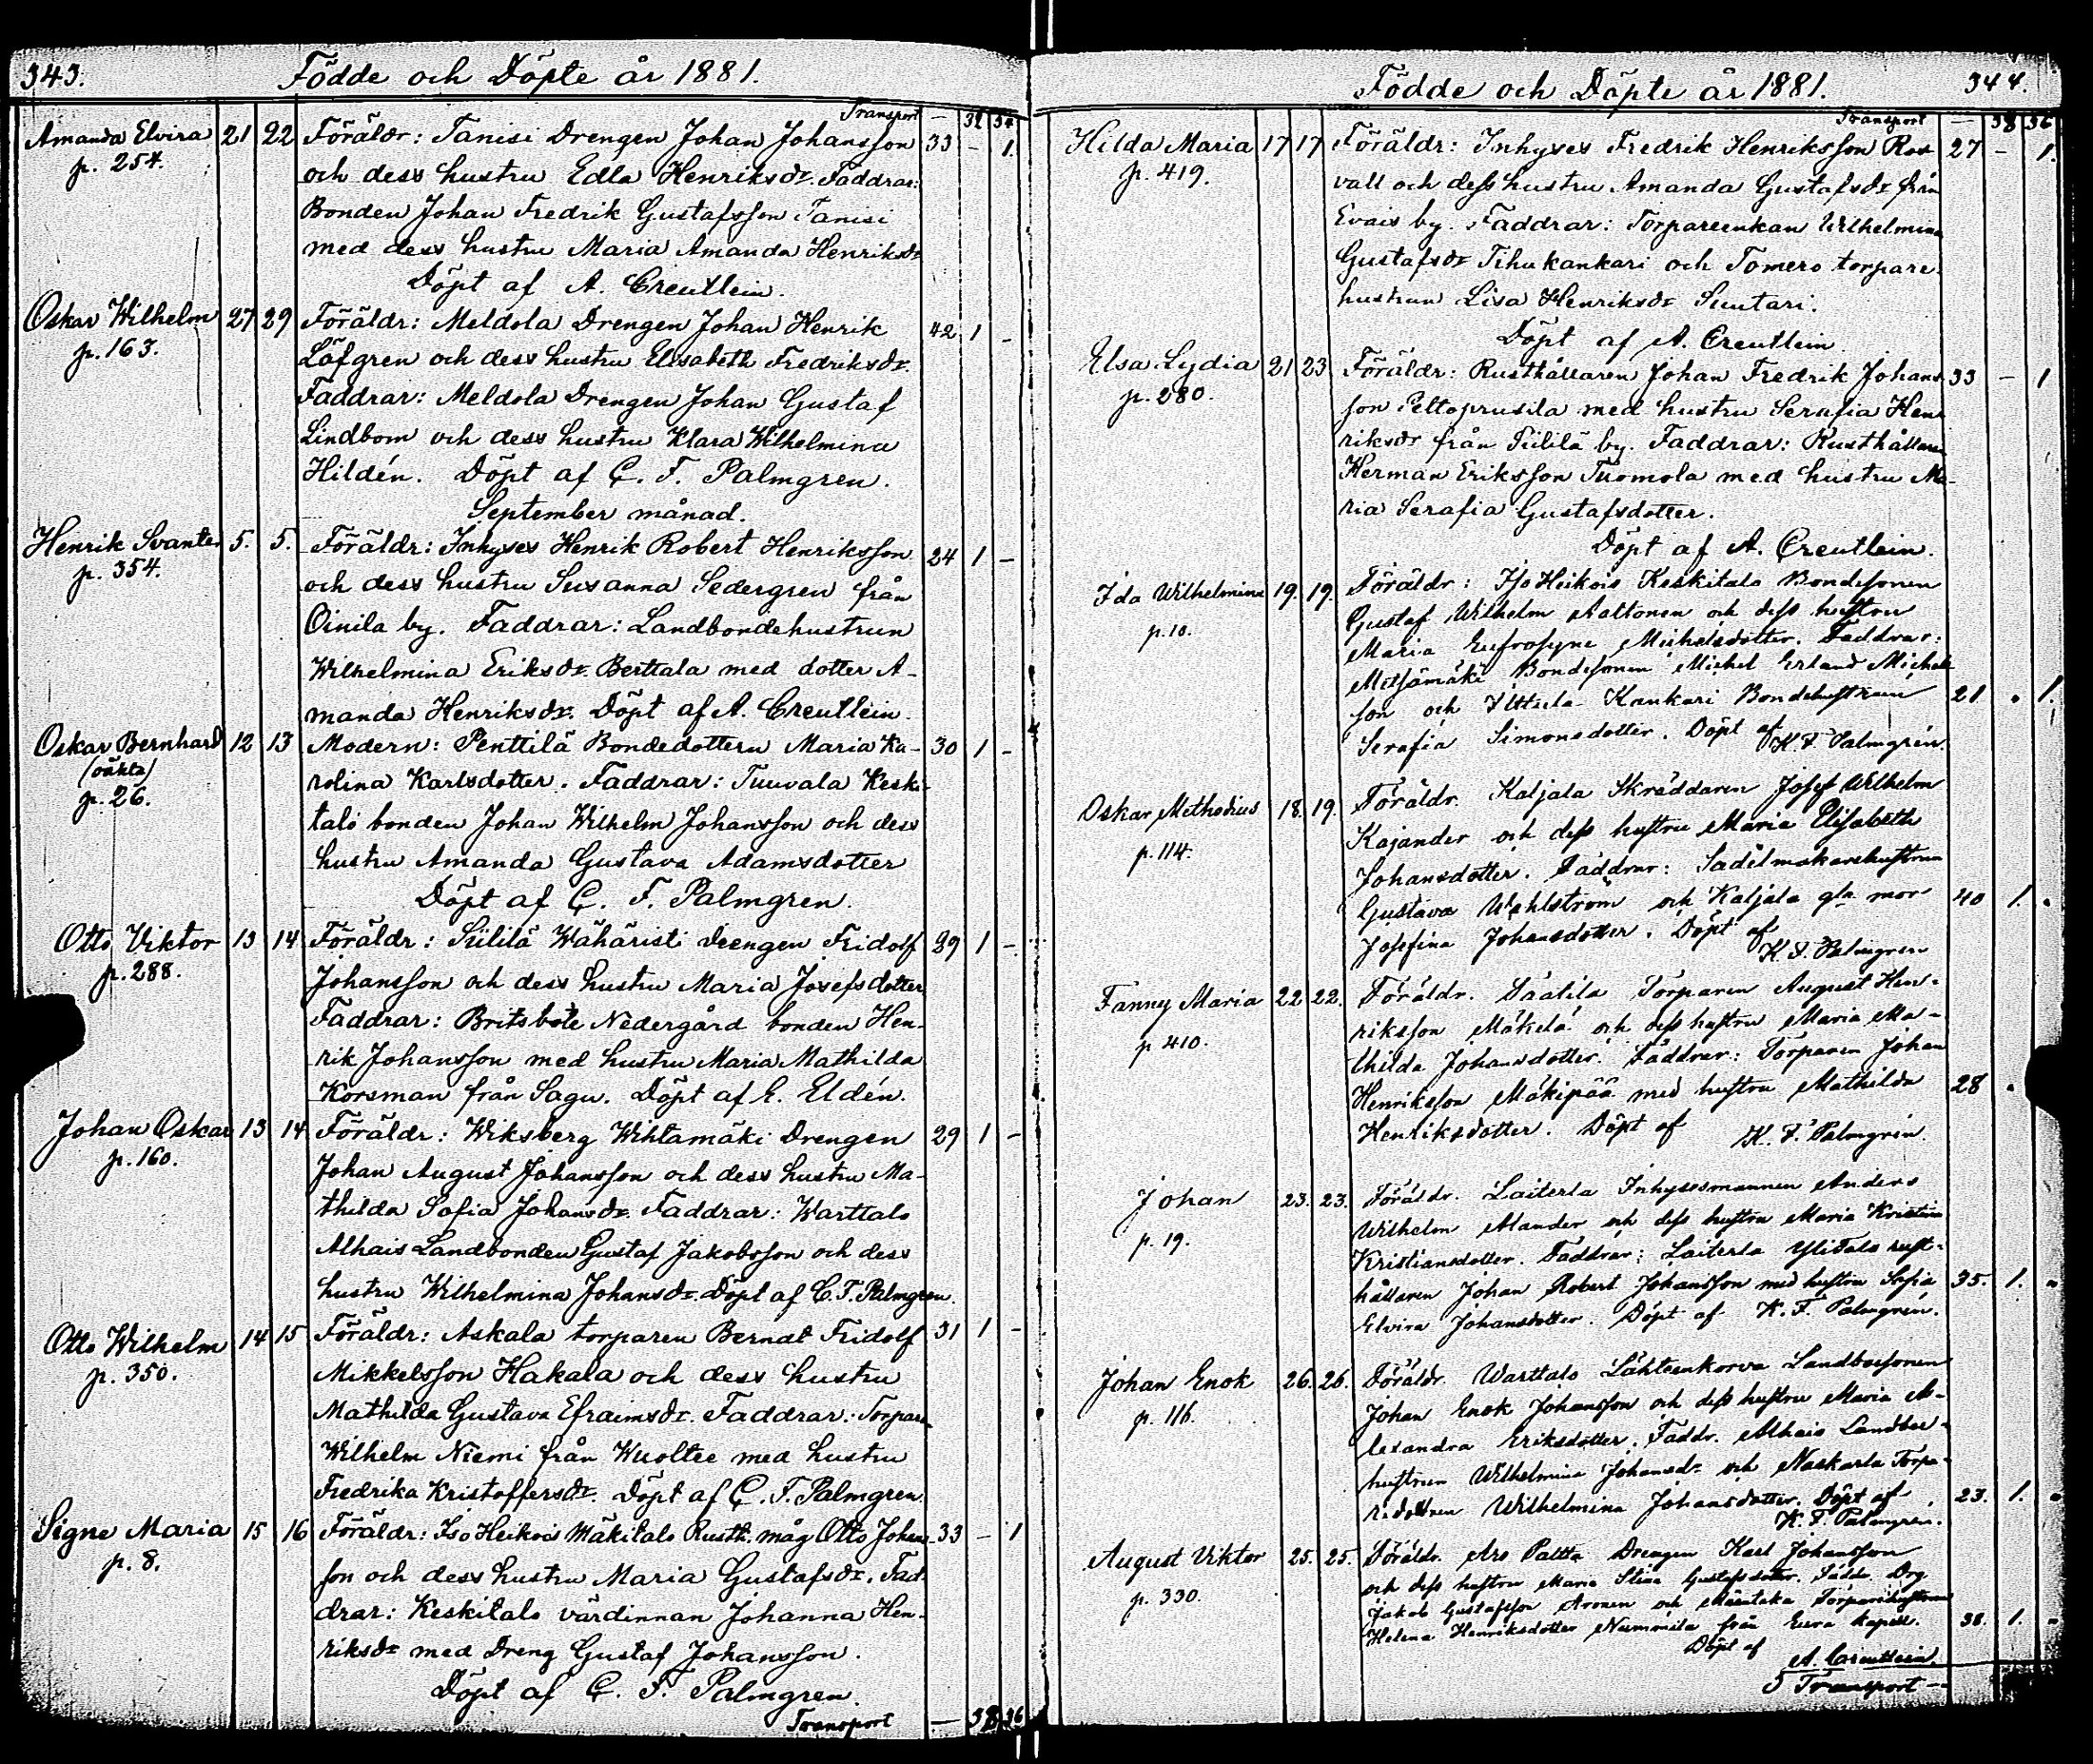 343.
Födde och Döpte år 1881.
Transport — 32 34
Amanda Elvira 21 22 Föräldr: Tanisi Drengen Johan Johansson 33 – 1.
p. 254. och dess hustru Edla Henriksdr. Faddrar:
Bonden Johan Fredrik Gustafsson Tanisi
med dess hustru Maria Amanda Henriksdr
Döpt af A. Creutlein.
Oskar Wilhelm 27 29 Föräldr: Meldola Drengen Johan Henrik 42 1 –
p. 163. Löfgren och dess hustru Elisabeth Fredriksdr.
Faddrar: Meldola Drengen Johan Gustaf
Lindbom och dess hustru Klara Wilhelmina
Hildén. Döpt af C. F. Palmgren.
September månad.
Henrik Svante 5. 5. Föräldr: Inhyses Henrik Robert Henriksson 24 1 –
p. 354. och dess hustru Susanna Sedergren från
Oinila by. Faddrar: Landbondehustrun
Wilhelmina Eriksdr. Berttala med dotter A-
manda Henriksdr. Döpt af A. Creutlein.
Oskar Bernhard 12 13 Modern: Penttilä Bondedottern Maria Ka- 30 1 –
(oäkta) rolina Karlsdotter. Faddrar: Tuuvala Keski-
p. 26. talo bonden Johan Wilhelm Johansson och dess
hustru Amanda Gustava Adamsdotter
Döpt af C. F. Palmgren.
Otto Viktor 13 14 Föräldr: Sülilä Wähäristi drengen Fridolf 29 1 –
p. 288. Johansson och dess hustru Maria Josefsdotter
Faddrar: Britsböle Nedergård bonden Hen-
rik Johansson med hustru Maria Mathilda
Korsman från Sagu. Döpt af E. Eldén.
Johan Oskar 13 14 Föräldr: Wiksberg Wihtamäki Drengen 29 1 –
p. 160. Johan August Johansson och dess hustru Ma-
thilda Sofia Johansdr. Faddrar: Warttalo
Alhais Landbonden Gustaf Jakobsson och dess
hustru Wilhelmina Johansdr. Döpt af C. F. Palmgren.
Otto Wilhelm 14 15 Föräldr: Askala torparen Berndt Fridolf 31 1 –
p. 350. Mikkelsson Hakala och dess hustru
Mathilda Gustava Efraimsdr. Faddrar: Torparn
Wilhelm Niemi från Wuoltee med hustru
Fredrika Kristoffersdr. Döpt af C. F. Palmgren.
Signe Maria 15 16 Föräldr: Iso Heikois Mäkitalo Rusth. måg Otto Johans- 33 – 1
p. 8. son och dess hustru Maria Gustafsdr. Fad-
drar: Keskitalo värdinnan Johanna Hen-
riksdr med Dreng Gustaf Johansson.
Döpt af C. F. Palmgren.
Transport — 38 36
Födde och Döpte år 1881.
344.
Transport — 38 36
Hilda Maria 17 17 Föräldr: Inhyses Fredrik Henriksson Ros- 27 – 1.
p. 419. vall och dess hustru Amanda Gustafsdr från
Evais by. Faddrar: Torpareenkan Wilhelmina
Gustafsdr Tihukankari och Tomero torpare
hustrun Lisa Henriksdr Suutari.
Döpt af A. Creutlein
Elsa Lydia 21 23 Föräldr: Rusthållaren Johan Fredrik Johans- 33 – 1
p. 280. son Peltoprusila med hustru Serafia Hen-
riksdr från Sülilä by. Faddrar: Rusthållaren
Herman Eriksson Tuomola med hustru Ma-
ria Serafia Gustafsdotter.
Döpt af A. Creutlein.
Ida Wilhelmina 19. 19. Föräldr: Iso Heikois Keskitalo Bondesonen
p. 10. Gustaf Wilhelm Aaltonen och dess hustru
Maria Eufrosyne Michelsdotter. Faddrar:
Metsämäki Bondesonen Michel Erland Michels-
son och Yltula Kankari Bondehustrun 21 . 1.
Serafia Simonsdotter. Döpt af
K. F. Palmgrén.
Oskar Methodius 18. 19. Föräldr. Kaljala Skräddaren Josef Wilhelm
p. 114. Kajander och dess hustru Maria Elisabeth
Johansdotter. Faddrar: Sadelmakarehustrun
Gustava Wahlström och Kaljala gla mor 40 1. .
Josefina Johansdotter. Döpt af
K. F. Palmgren
Fanny Maria 22 22. Föräldr. Saalila Torparen August Hen-
p 410. riksson Mäkelä och dess hustru Maria Ma-
thilda Johansdotter. Faddrar: Torparen Johan
Henriksson Mäkipää med hustru Mathilda 28 .
Henriksdotter. Döpt af K. F. Palmgrén.
Johan 23. 23. Föräldr. Laiterla Inhysesmannen Anders
p. 19. Wilhelm Alander och dess hustru Maria Kristina
Kristiansdotter. Faddrar: Laiterla Ylitalo rust-
hållaren Johan Robert Johansson med hustru Sofia 35. 1. –
Elvira Johansdotter. Döpt af K. F. Palmgrén.
Johan Enok 26. 26. Föräldr. Warttalo Lähteenkorva Landbosonen
p. 116. Johan Enok Johansson och dess hustru Maria A-
lexandra Eriksdotter. Faddr. Alhais Landbo-
hustrun Wilhelmina Johansdr och Naskarla Torpa-
redottren Wilhelmina Johansdotter. Döpt af 23. 1. –
K. F. Palmgrén.
August Viktor 25. 25. Föräldr. Aro Paltta Drengen Karl Johansson
p. 330. och dess hustru Maria Stina Gustafsdotter. Fadd. Drg.
Jakob Gustafsson Aronen och Torparehustrun
Helena Henriksdotter Nummila från Eura kapell. 38. 1. –
Döpt af
A. Creutlein.
5 Transport —